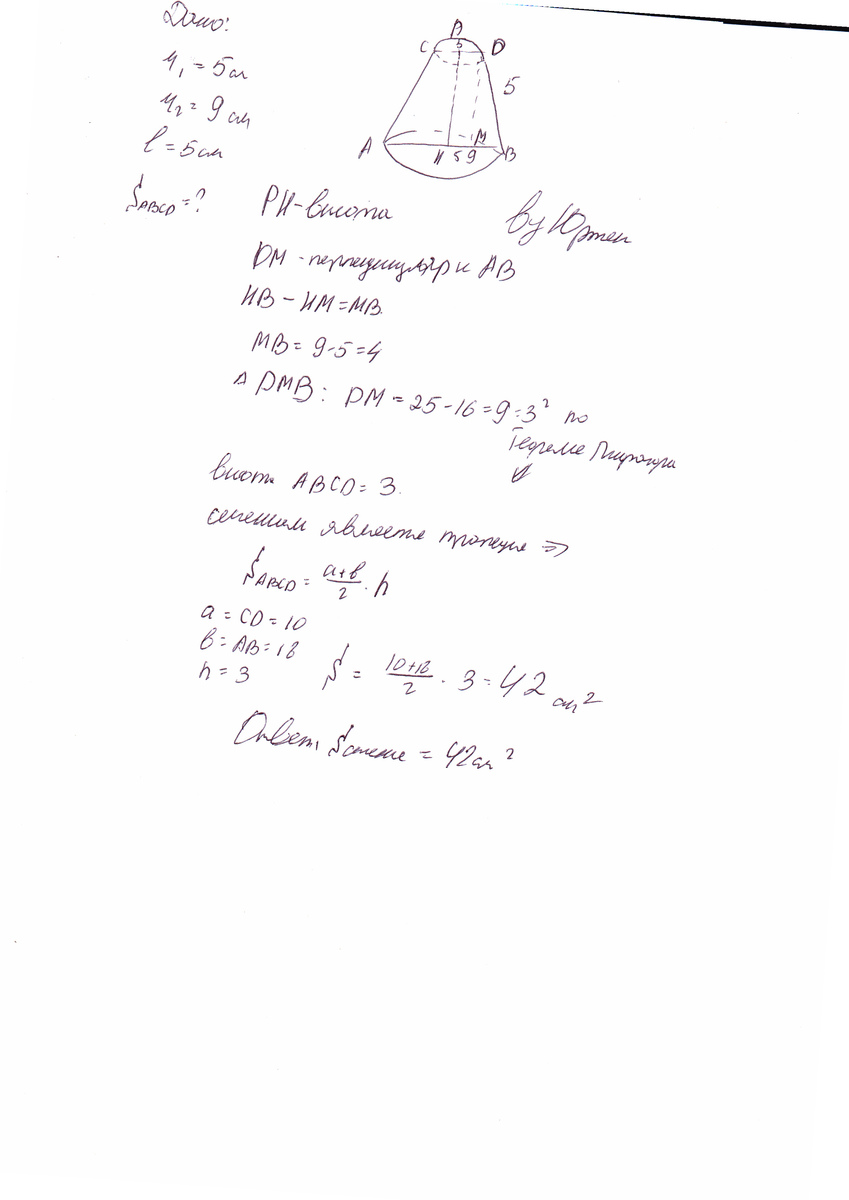 Дано:
r₁ = 5см
r₂ = 9 см
l = 5см
S ABCD = ?
P
C 5 D
5
A H 5 9 M B
PH - высота
by Юрген
DM - перпендикуляр к AB
HB - HM = MB.
MB = 9-5=4
△ DMB: DM = 25-16=9=3² по
Теореме Пифагора
⇓
высота ABCD = 3.
сечением является трапеция ⇒
S ABCD = a+b/2 · h
a = CD = 10
b = AB = 18
h = 3
S = 10+18/2 · 3 = 42 см²
Ответ: S сечение = 42см²